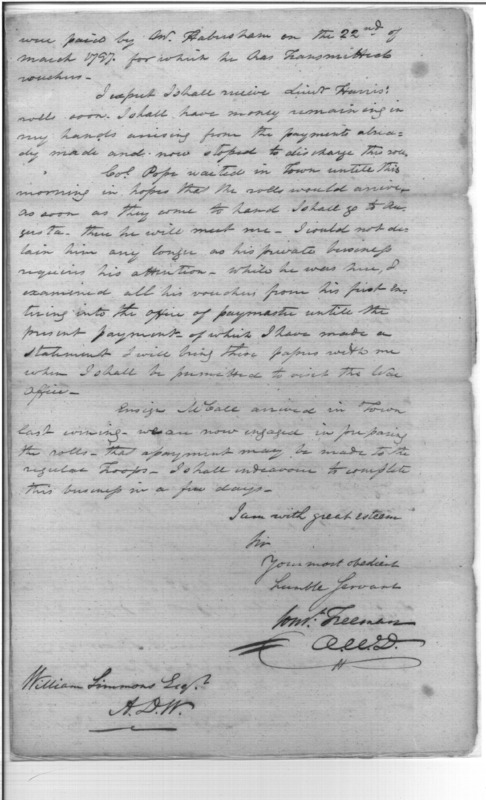 were paid by Mr. Habersham on the 22nd of
march 1797. for which he has Transmitted
vouchers -
I expect I shall recieve Lieut Harris's
rolls soon. I shall have money remaining in
my hands arising from the payments alrea-
dy made and now stoped to discharge the
Col. Pope waited in Town untill this
morning in hopes that the rolls would arrive -
as soon as they come to hand I shall go to Au-
gusta - there he will meet me - I could not de-
tain him any longer as his private business
requires his attention - while he was here, I
examined all his vouchers from his first en-
tering into the office of paymaster untill the
present payment - of which I have made a
statement I will bring these papers with me
when I shall be permitted to visit the War
office -
Ensign McCall arrived in Town
last evining - we are now engaged in preparing
the rolls - that a payment may be made to the
regular Troops - I shall endeavour to complete
this business in a few days -
I am with great esteem
Sir
Your most obedient
humble Servant
Const. Freeman
A.W.D.
William Simmons Esqr.
A.D.W.